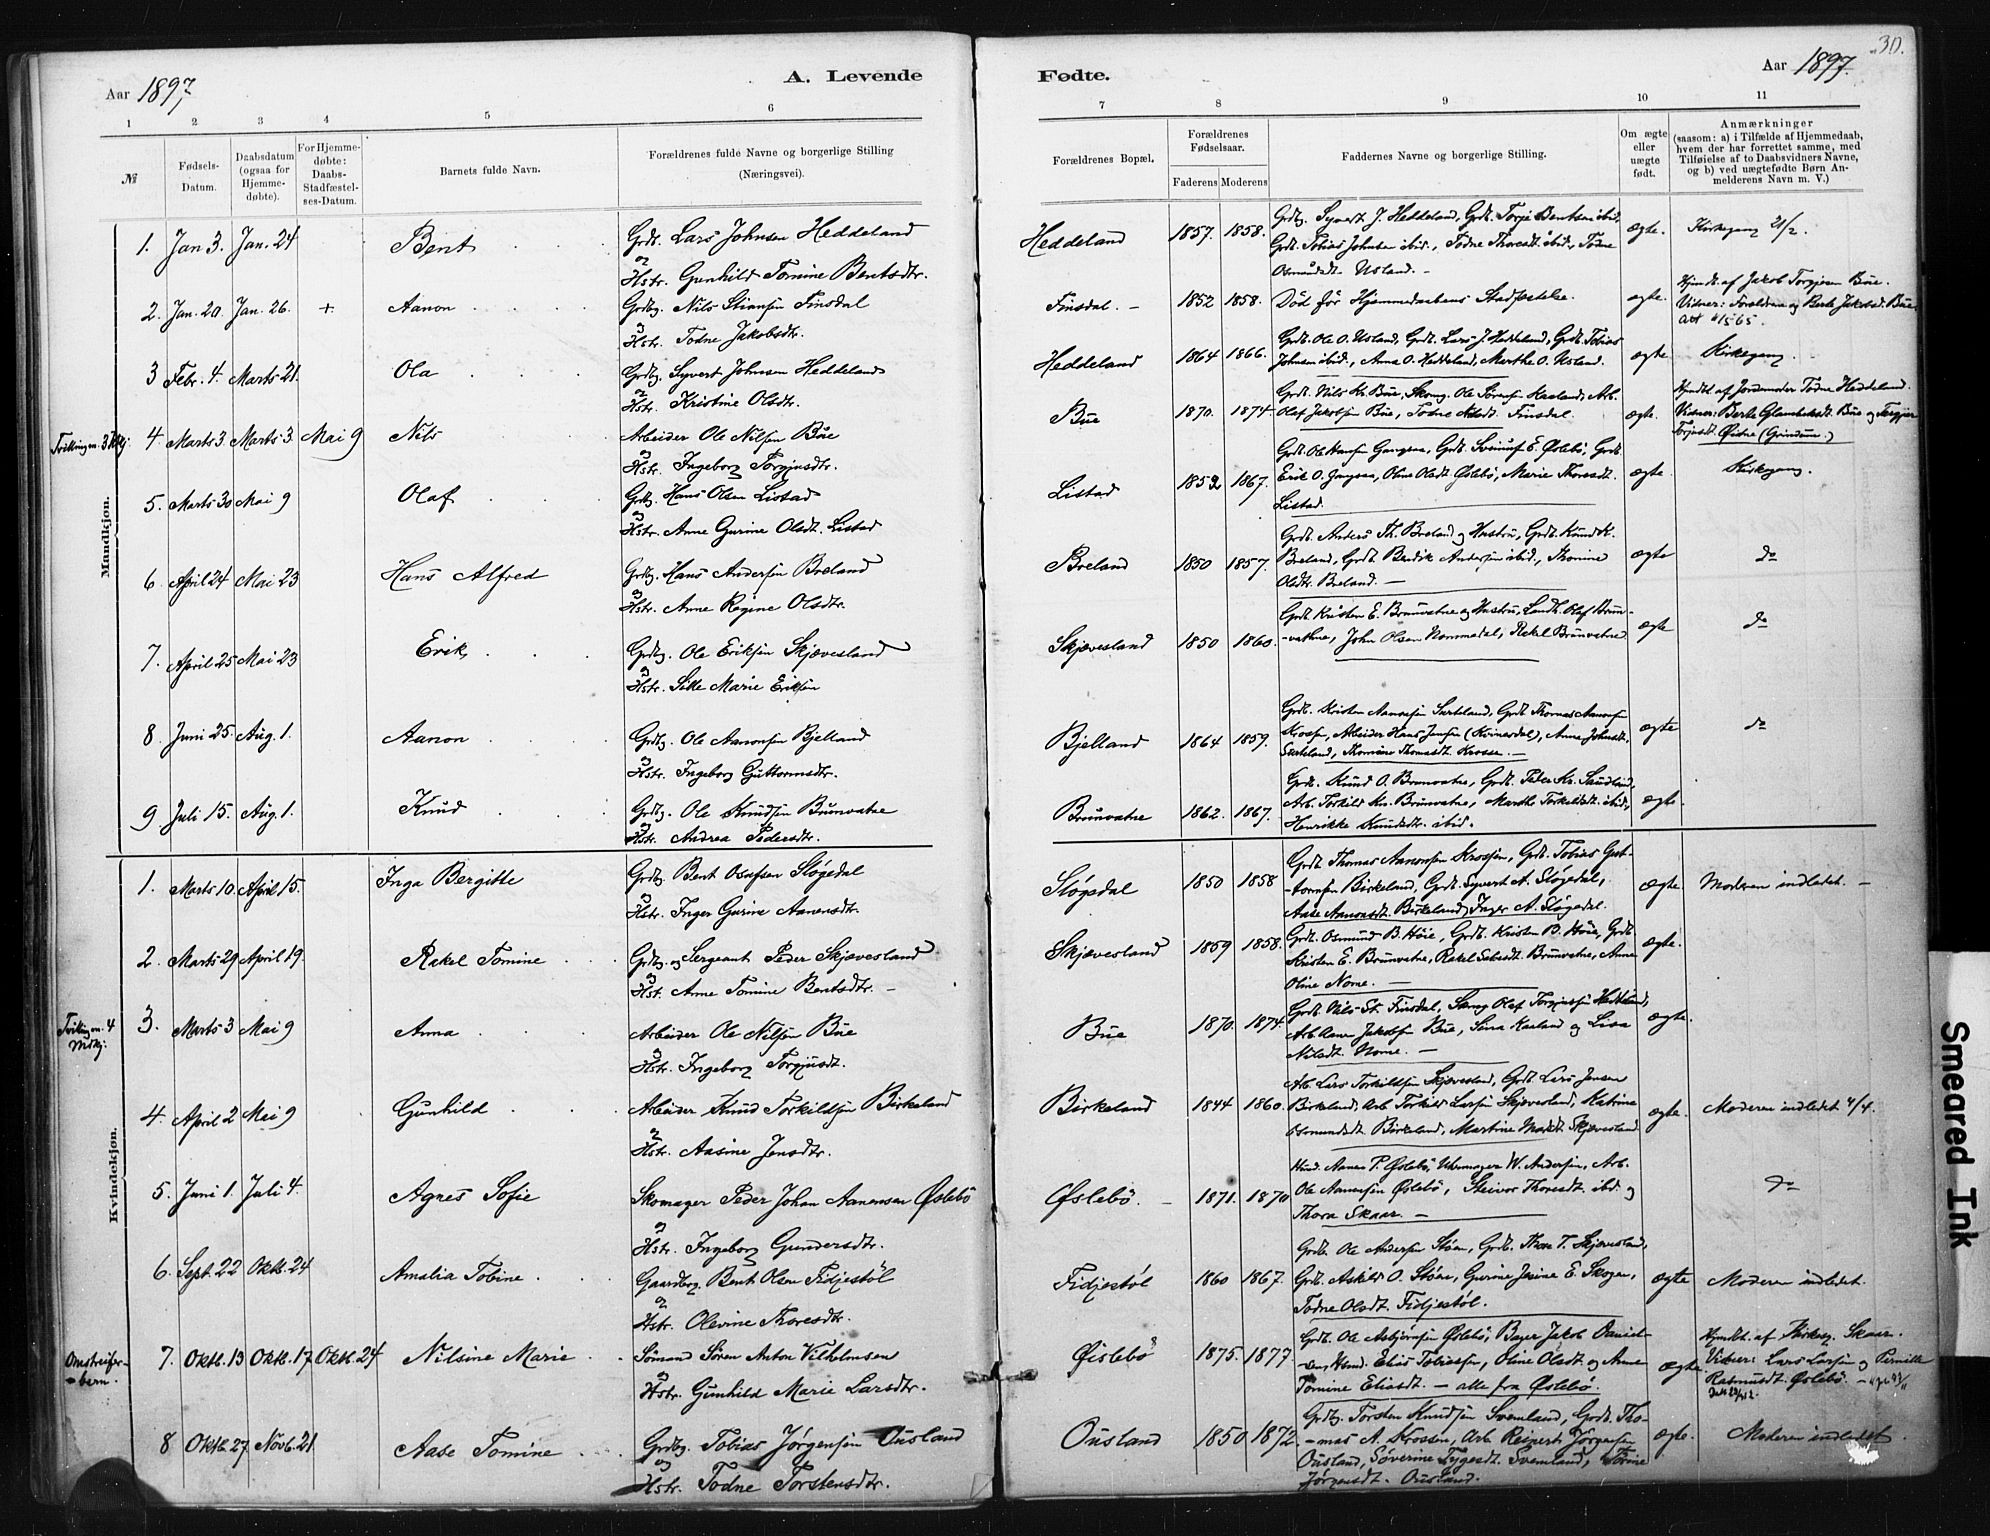 30.
Aar 1897,
A. Levende
Fødte.
Aar 1897.
1 2 3 4 5 6 7 8 9 10 11
№
Fødsels-
Datum.
Daabsdatum
(ogsaa for
Hjemme-
døbte).
For Hjemme-
døbte:
Daabs-
Stadfæstel-
ses-Datum.
Barnets fulde Navn.
Forældrenes fulde Navne og borgerlige Stilling
(Næringsvei).
Forældrenes Bopæl.
Forældrenes
Fødselsaar.
Faderens Moderens
Faddernes Navne og borgerlige Stilling.
Om ægte
eller
uægte
født.
Anmærkninger
(saasom: a) i Tilfælde af Hjemmedaab,
hvem der har forrettet samme, med
Tilføielse af to Daabsvidners Navne,
og b) ved uægtefødte Børn An-
melderens Navn m. V.)
Mandkjøn.
1. Jan 3. Jan. 24 Bent
Grdb. Lars Johnsen Heddeland
og
Hstr. Gunhild Tomine Bentsdtr.
Heddeland 1857. 1858.
Grdbg. Syvert J. Heddeland, Grdb. Torje Bentsen ibid.
Grdb. Tobias Johnsen ibid., Todne Thoresdt. ibid., Todne
Osmundsdt. Usland. —
ægte. Kirkegang 21/2.
2. Jan. 20. Jan. 26. + Aanon
Grdbg. Nils Stiansen Finsdal
og
Hstr. Todne Jakobsdtr.
Finsdal. — 1852 1858.
Død før Hjemmedaabens Stadfæstelse.
ægte.
Hjmdt. af Jakob Torgjesen Bue.
Vidner: Forældrene og Berte Jakobsd. Bue
3 Febr. 4. Marts 21. Ola
Grdbg. Syvert Johnsen Heddeland
og
Hstr. Kristine Olsdtr.
Heddeland 1864 1866.
Grdb. Ole O. Usland, Grdb. Lars J. Heddeland, Grdb. Tobias
Johnsen ibid., Anna O. Heddeland, Marthe O. Usland.
ægte Kirkegang.
Tvilling m. 3 Kvkj.
4. Marts 3. Marts 3. Mai 9 Nils
Arbeider Ole Nilsen Bue
og
Hstr. Ingeborg Torgjusdtr.
Bue 1870. 1874.
Grdb. Nils Kr. Bue, Skomg. Ole Sørensen Kasland, Arb.
Olaf Jakobsen Bue, Todne Nilsdt. Finsdal.
ægte.
Hjmdbt. af Jordemoder Todne Heddeland.
Øidne (Grindum.)
5. Marts 30 Mai 9 Olaf
Grdbg. Hans Olsen Listad
og
Hstr. Anne Gurine Olsdt. Listad
Listad 1852 1867.
Erik O. Gangsaa, Oline Olsdt. Øslebö, Marie Thoresdt.
Listad.
ægte. Kirkegang.
6. April 24 Mai 23 Hans Alfred
Grdbg. Hans Andersen Breland
og
Hstr. Anne Regine Olsdtr.
Breland 1850 1857.
Grdb. Anders Th. Breland og Hustru, Grdb. Knud K.
Breland, Grdb. Bendik Andersen ibid., Thomine
Olsdtr. Breland. —
ægte do
7. April 25 Mai 23 Erik
Grdbg. Ole Eriksen Skjævesland
og
Hstr. Silke Marie Eriksen
Skjævesland 1850 1860.
Grdb. Kristen E. Brunvatne og Hustru, Landh. Olaf Brun-
-vathne, John Olsen Nommedal, Rakel Brunvatne
ægte do
8. Juni 25. Aug. 1. Aanon
Grdbg. Ole Aanonsen Bjelland
og
Hstr. Ingeborg Guttormsdtr.
Bjelland 1864 1859.
Grdb. Kristen Aanonsen Surteland, Grdb. Thomas Aanonsen
Krossen, Arbeider Hans Jensen (Kvinesdal), Anne Johnsdt.
Surteland, Thomine Thomasdt. Krossen. —
ægte do
9 Juli 15. Aug. 1. Knud
Grdbg. Ole Knudsen Brunvatne
og
Hstr. Andrea Pedersdtr.
Brunvatne 1862. 1867.
Grdb. Knud O. Brunvatne, Grdb. Peder Kr. Saudland,
Arb. Torkild Kn. Brunvatne, Marthe Torkeldsdt. ibid.,
Henrikke Knudsdt. ibid.
ægte.
Kvindekjøn.
1. Marts 10. April 15. Inga Bergitte
Grdbg. Bent Olafsen Sløgedal
og
Hstr. Inger Gurine Aanensdtr.
Sløgedal 1850 1858
Grdb. Thomas Aanonsen Krossen, Grdb. Tobias Gut-
-tormsen Birkeland, Grdb. Syvert A. Sløgedal,
Aase Aanonsdt. Birkeland, Inger A. Sløgedal.
ægte. Moderen indledet. —
2. Marts 29 April 19. Rakel Tomine
Grdbg. og Sergeant Peder Skjævesland
og
Hst. Anne Tomine Bentsdtr. —
Skjævesland 1859 1858.
Grdb. Osmund B. Høie, Grdb. Kristen B. Høie, Grdb.
Kristen E. Brunvatne, Rakel Brunvatne, Anne
Oline Nome. —
ægte.
Tvilling m. 4 Mdkj:
3. Marts 3 Mai 9 Anna
Arbeider Ole Nilsen Bue
og
Hstr. Ingeborg Torgjusdt.
Bue 1870. 1874.
Grdb. Nils St. Finsdal, Olaf Torgjussen Heddeland,
Arb. Aanen Jakobsen Bue, Sina Kasland og Lisa
Nilsdt. Nome. —
ægte.
4. April 2 Mai 9 Gunhild
Arbeider Knud Torkildsen Birkeland
og
Hstr. Aasine Jensdtr.
Birkeland 1844 1860.
Arb. Lars Torkildsen Skjævesland, Grdb. Lars Jensen
Birkeland, Arb. Torkild Larsen Skjævesland, Katrine
Osmundsdt. Birkeland, Martine Skjævesland
ægte. Moderen indledet 4/4.
5. Juni 1. Juli 4. Agnes Sofie
Skomager Peder Johan Aanensen Øslebö
og
Hstr. Ingeborg Gundersdtr.
Øslebö. — 1871. 1870
Hmd. Aanen P. Øslebö, Uhrmager W. Andersen, Arb.
Ole Aanensen Øslebö, Steivor Thoresdt. ibd. og
Thora Skaar. —
do
6. Sept. 22 Oktb. 24 Amalia Tobine
Gaardbrg. Bent Olsen Fidjestøl
og
Hstr. Olevine Thoresdtr.
Fidjestøl 1860 1867.
Grdb. Ole Andersen Støen, Grdb. Thore T. Skjævesland,
Grdb. Askild O. Støen, Gurine Jesine E. Skogen,
Todne Olsdt. Fidjestøl.
ægte Moderen indledet.
Omstreifer-
-barn.
7. Oktb. 13 Oktb. 17 Oktb. 24 Nilsine Marie
Sømand Søren Anton Vilhelmsen
og
Hstr. Gunhild Marie Larsdtr.
Øislebö 1875. 1877
Grdb. Ole Asbjørnsen Øslebö, Bager Jakob Daniel-
-sen, Hsmd. Elias Tobiassen, Oline Olsdt. og Anne
Tomine Eliasdt. — alle fra Øslebö.
ægte
Hjmdt. af Kirkesg. Skaar.
Vidner: Lars Larsen og Pernille
Rasmusdt. Øslebö. —
8 Oktb. 27 Novb. 21. Aase Tomine
Grdbg. Tobias Jørgensen Ousland
og
Hstr. Todne Torstensdtr.
Ousland 1850 1872.
Grdbg. Torsten Knudsen Svemland, Grdb. Tho-
-mas A. Krossen, Arb. Reinert Jørgensen
Ousland, Søverine Tygesdt. Svemland, Torine
Jørgensdt. Ousland.
ægte. Moderen indledet.
Smeared Ink